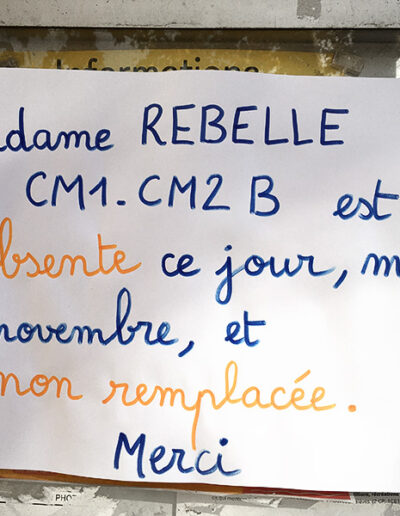 Informations
adame REBELLE
CM1-CM2 B est
absente ce jour, m
novembre, et
non remplacée.
Merci
PHOT